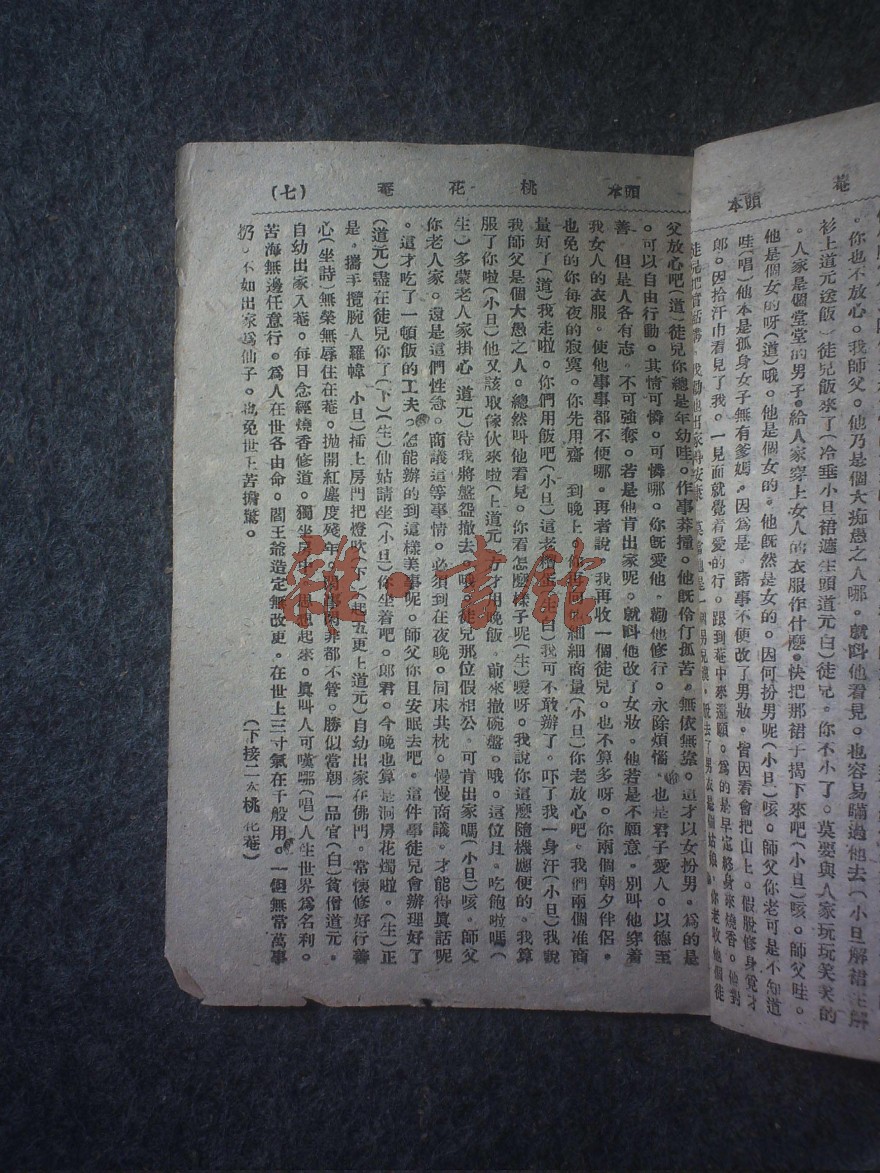 菴
頭本
。你也不放心。我師父。他乃是個大痴愚之人哪。就呌他看見。也容易瞞過他去(小旦解裙生解
衫上道元送飯)徒兒飯來了(冷垂小旦裙遮生頭道元白)徒兒。你不小了。莫要與人家玩玩笑笑的
。人家是個堂堂的男子。給人家穿上女人的衣服作什麽。快把那裙子揭下來吧(小旦)咳。師父哇。
他是個女的呀(道)哦。他是個女的。他既然是女的。因何扮男呢(小旦)咳。師父你老可是不知道
哇(唱)他本是孤身女子無有爹媽。因爲是。諸事不便改了男妝。皆因看會把山上。假脫修身覓才
郎。因拾汗巾看見了我。一見面就覺着愛的行。跟到菴中來還願。爲的是早定終身來燒香。他對
頭本
桃花菴
(七)
父放心吧(道)徒兒你總是年幼哇。作事莽撞。他旣然伶仃孤苦。無依無靠。這才以女扮男。爲的是
。可以自由行動。其情可憐。可憐哪。你旣愛他。勸他修行。永除煩惱。也是君子愛人。以德至
善。但是人各有志。不可強奪。若是他肯出家呢。就呌他改了女妝。他若是不願意。別叫他穿着
我女人的衣服。使他事事都不便哪。再者說。我再收一個徒兒。也不算多呀。你兩個朝夕伴侶。
也免的你每夜的寂寞。你先用齋。到晚上。你再向他細細商量(小旦)你老放心吧。我們兩個准商
量好了(道)我走啦。你們用飯吧(小旦)這老糟(生白)我可不敢辦了。吓了我一身汗(小旦)我說
我師父是個大愚之人。總然叫他看見。你看怎麽樣子呢(生)嗳呀。我說你這麽隨機應便的。我算
服了你啦(小旦)他又該取傢伙來啦(上道元)方才用晚飯。前來撤碗盤。哦。這位且。吃飽啦嗎(
生)多蒙老人家掛心(道元)待我將盤盌撤去。哦。徒兒那位假相公。可肯出家嗎(小旦)咳。師父
你老人家。還是這們性急。商議這等事情。必須到在夜晚。同床共枕。慢慢商議。才能得眞話呢
。這才吃了一頓飯的工夫。怎能辦的到這樣美事呢。師父你且安眠去吧。這件事徒兒會辦理好了
(道元)盡在徒兒你了(下)(生)仙姑請坐(小旦)你坐着吧。郎君。今晚也算是洞房花燭啦。(生)正
是。攜手攬腕入羅幃(小旦)插上房門把燈吹(下)(起五更上道元)自幼出家在佛門。常懷修好行善
心(坐詩)無榮無辱住在菴。拋開紅塵度殘年。閑事閑非都不管。勝似當朝一品官(白)貧僧道元。
自幼出家入菴。每日念經燒香修道。獨坐房中。思想起來。眞叫人可嘆哪(唱)人生世界爲名利。
苦海無邊任意行。爲人在世各由命。閻王爺造定無改更。在世上三寸氣在千般用。一但無常萬事
扔。不如出家爲仙子。也免世上苦擔驚。
(下接二本桃花菴)
雜·書館